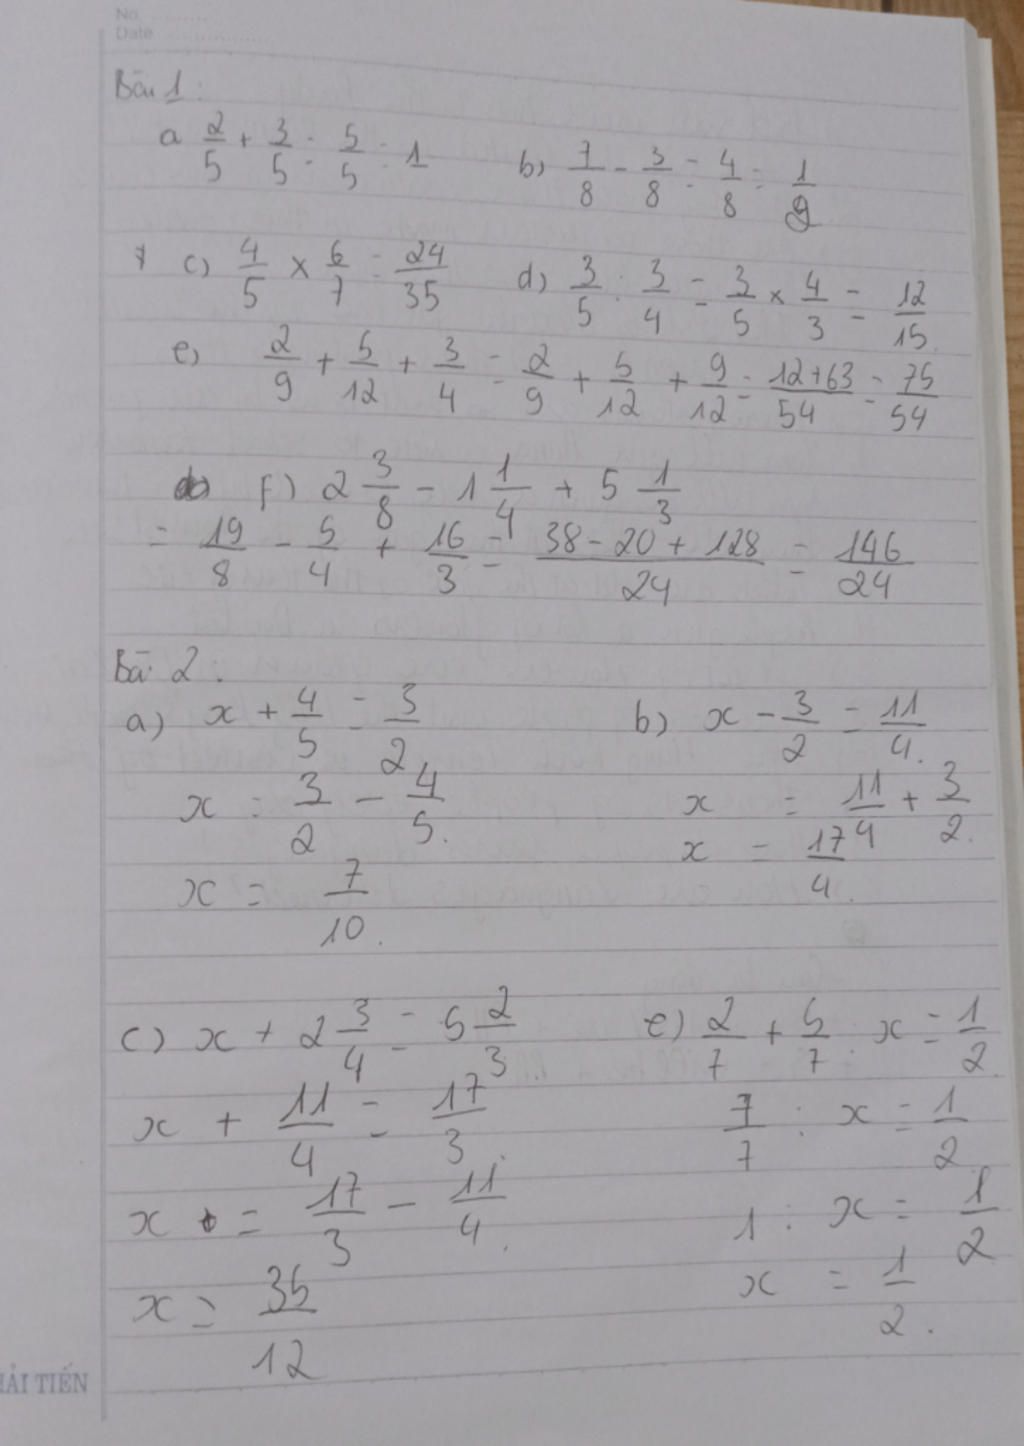 No.
Date
Bài 1:
a 2/5 + 3/5 = 5/5 = 1 b) 7/8 - 3/8 = 4/8 = 1/2
c) 4/5 × 6/7 = 24/35 d) 3/5 : 3/4 = 3/5 × 4/3 = 12/15.
e) 2/9 + 5/12 + 3/4 = 2/9 + 5/12 + 9/12 = 12+63/54 = 75/54
f) 2 3/8 - 1 1/4 + 5 1/3
= 19/8 - 5/4 + 16/3 = 38 - 20 + 128/24 = 146/24
Bài 2.
a) x + 4/5 = 3/2 b) x - 3/2 = 11/4.
x = 3/2 - 4/5. x = 11/4 + 3/2.
x = 7/10. x = 17/4.
c) x + 2 3/4 = 5 2/3 e) 2/7 + 5/7 x = 1/2.
x + 11/4 = 17/3. 7/7 : x = 1/2
x = 17/3 - 11/4. 1 : x = 1/2
x = 35/12 x = 1/2.
HẢI TIẾN